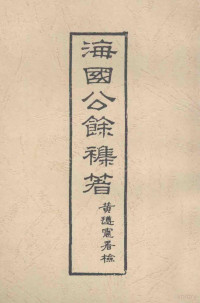 海國公餘襍著
黃遵憲署檢